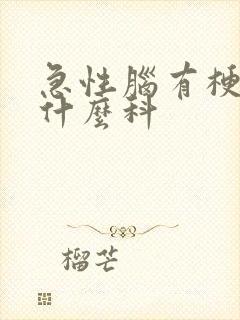 急性腦有梗
什麼科
榴芒